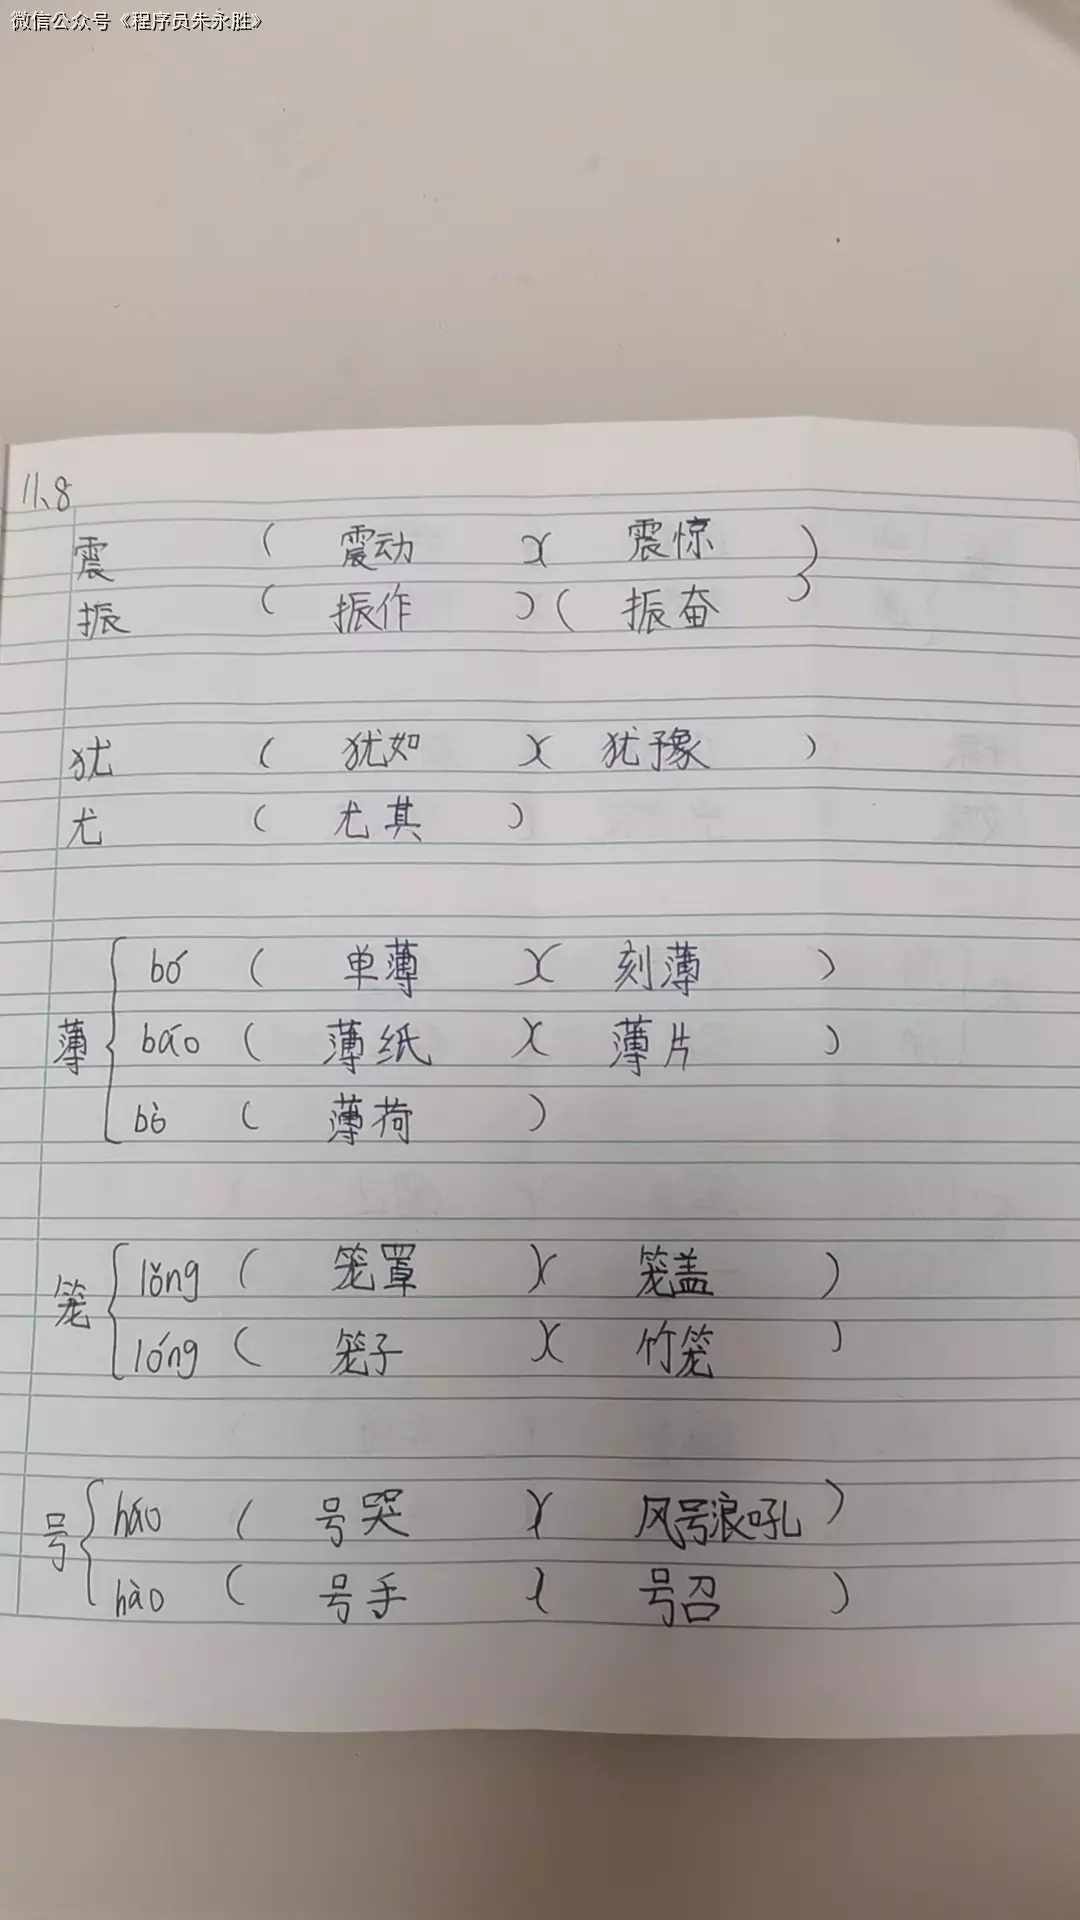 微信公众号《程序员朱永胜》
11、8
震 ( 震动 )( 震惊 )
振 ( 振作 )( 振奋 )
犹 ( 犹如 )( 犹豫 )
尤 ( 尤其 )
bó ( 单薄 )( 刻薄 )
薄 báo ( 薄纸 )( 薄片 )
bò ( 薄荷 )
笼 lǒng ( 笼罩 )( 笼盖 )
lóng ( 笼子 )( 竹笼 )
号 háo ( 号哭 )( 风号浪吼 )
hào ( 号手 )( 号召 )